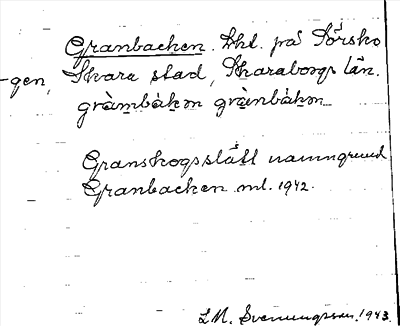 Granbacken. Lht. på Dörsko
-gen, Skara stad, Skaraborgs län.
gràmbàkən grànbàkən
Granskogsslätt namngrund
Granbacken ml. 1942.
L M. Svenungsson. 1943.